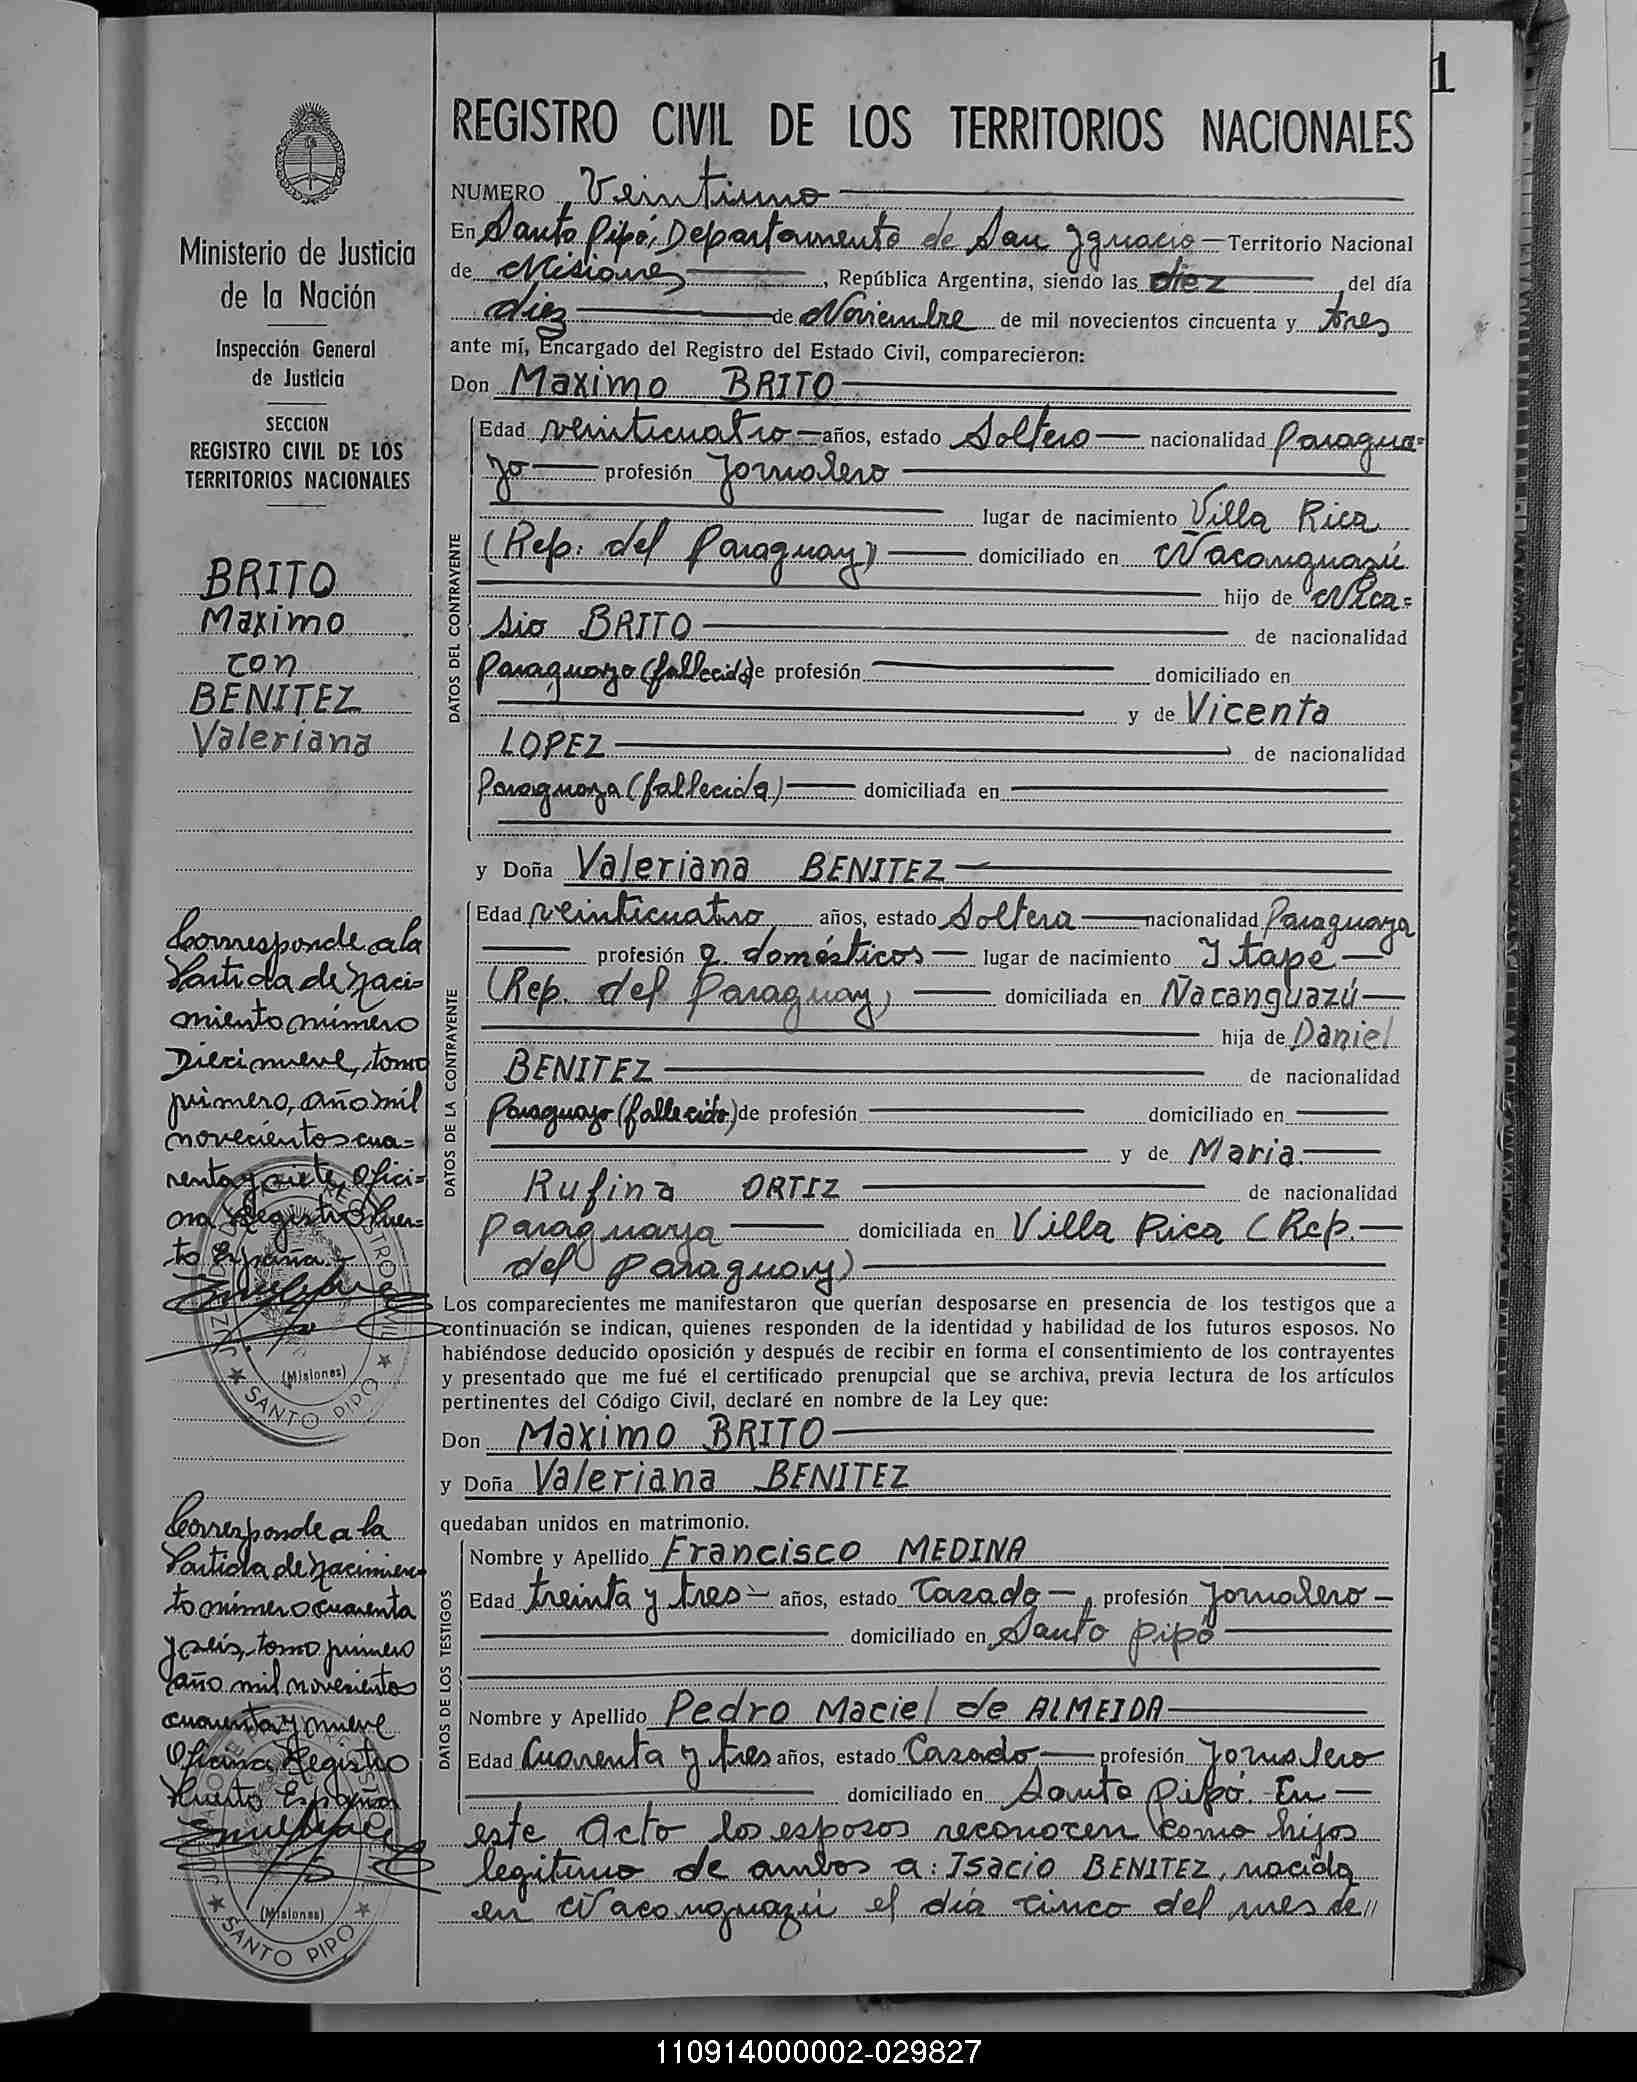 1
REGISTRO CIVIL DE LOS TERRITORIOS NACIONALES
Ministerio de Justicia
de la Nación
Inspección General
de Justicia
SECCION
REGISTRO CIVIL DE LOS
TERRITORIOS NACIONALES
BRITO
Maximo
con
BENITEZ
Valeriana
Corresponde a la
Partida de Naci=
miento número
Diecinueve, tomo
primero, año mil
novecientos cua=
renta y siete, Ofici=
na Registro Puer=
to España.-
JUZGADO DE PAZ Y REGISTRO CIVIL
(Misiones)
★ SANTO PIPO ★
Corresponde a la
Partida de Nacimien=
to número cuarenta
y seis, tomo primero
año mil novecientos
cuarenta y nueve
Oficina Registro
Puerto España
(Misiones)
★ SANTO PIPO ★
NUMERO Veintiuno
En Santo Pipó, Departamento de San Ygnacio — Territorio Nacional
de Misiones, República Argentina, siendo las diez del día
diez de Noviembre de mil novecientos cincuenta y tres
ante mí, Encargado del Registro del Estado Civil, comparecieron:
Don Maximo BRITO
DATOS DEL CONTRAYENTE
Edad veinticuatro — años, estado Soltero — nacionalidad Paragua=
yo — profesión Jornalero
lugar de nacimiento Villa Rica
(Rep: del Paraguay) — domiciliado en Ñacanguazú
hijo de Nica=
sio BRITO de nacionalidad
Paraguayo (fallecido) de profesión domiciliado en
y de Vicenta
LOPEZ de nacionalidad
Paraguaya (fallecida) — domiciliada en
y Doña Valeriana BENITEZ
DATOS DE LA CONTRAYENTE
Edad veinticuatro años, estado Soltera — nacionalidad Paraguaya
profesión q. domésticos — lugar de nacimiento Itape —
(Rep. del Paraguay) — domiciliada en Ñacanguazú —
hija de Daniel
BENITEZ de nacionalidad
Paraguayo (fallecido) de profesión domiciliado en
y de Maria
Rufina ORTIZ de nacionalidad
Paraguaya — domiciliada en Villa Rica (Rep. —
del Paraguay)
Los comparecientes me manifestaron que querían desposarse en presencia de los testigos que a
continuación se indican, quienes responden de la identidad y habilidad de los futuros esposos. No
habiéndose deducido oposición y después de recibir en forma el consentimiento de los contrayentes
y presentado que me fué el certificado prenupcial que se archiva, previa lectura de los artículos
pertinentes del Código Civil, declaré en nombre de la Ley que:
Don Maximo BRITO
y Doña Valeriana BENITEZ
quedaban unidos en matrimonio.
DATOS DE LOS TESTIGOS
Nombre y Apellido Francisco MEDINA
Edad treinta y tres — años, estado Casado —, profesión Jornalero —
domiciliado en Santo Pipó
Nombre y Apellido Pedro Maciel de ALMEIDA
Edad Cuarenta y tres años, estado Casado — profesión Jornalero
domiciliado en Santo Pipó. En —
este Acto los esposos reconocen como hijos
legitimo de ambos a: Isacio BENITEZ, nacido
en Ñacanguazú el día cinco del mes de //
110914000002-029827